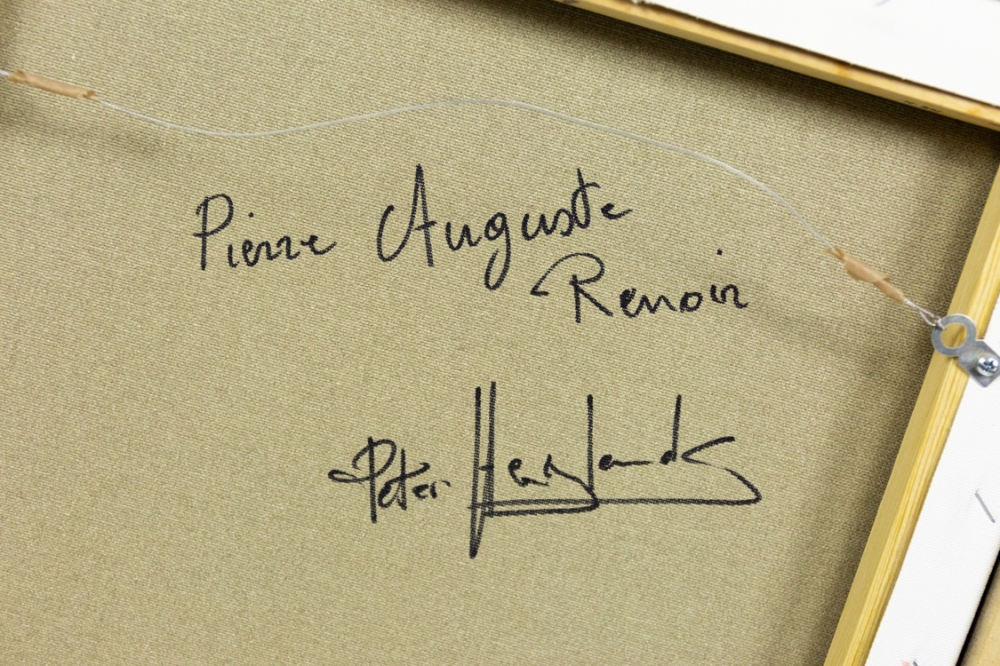 Pierre Auguste
Renoir
Peter